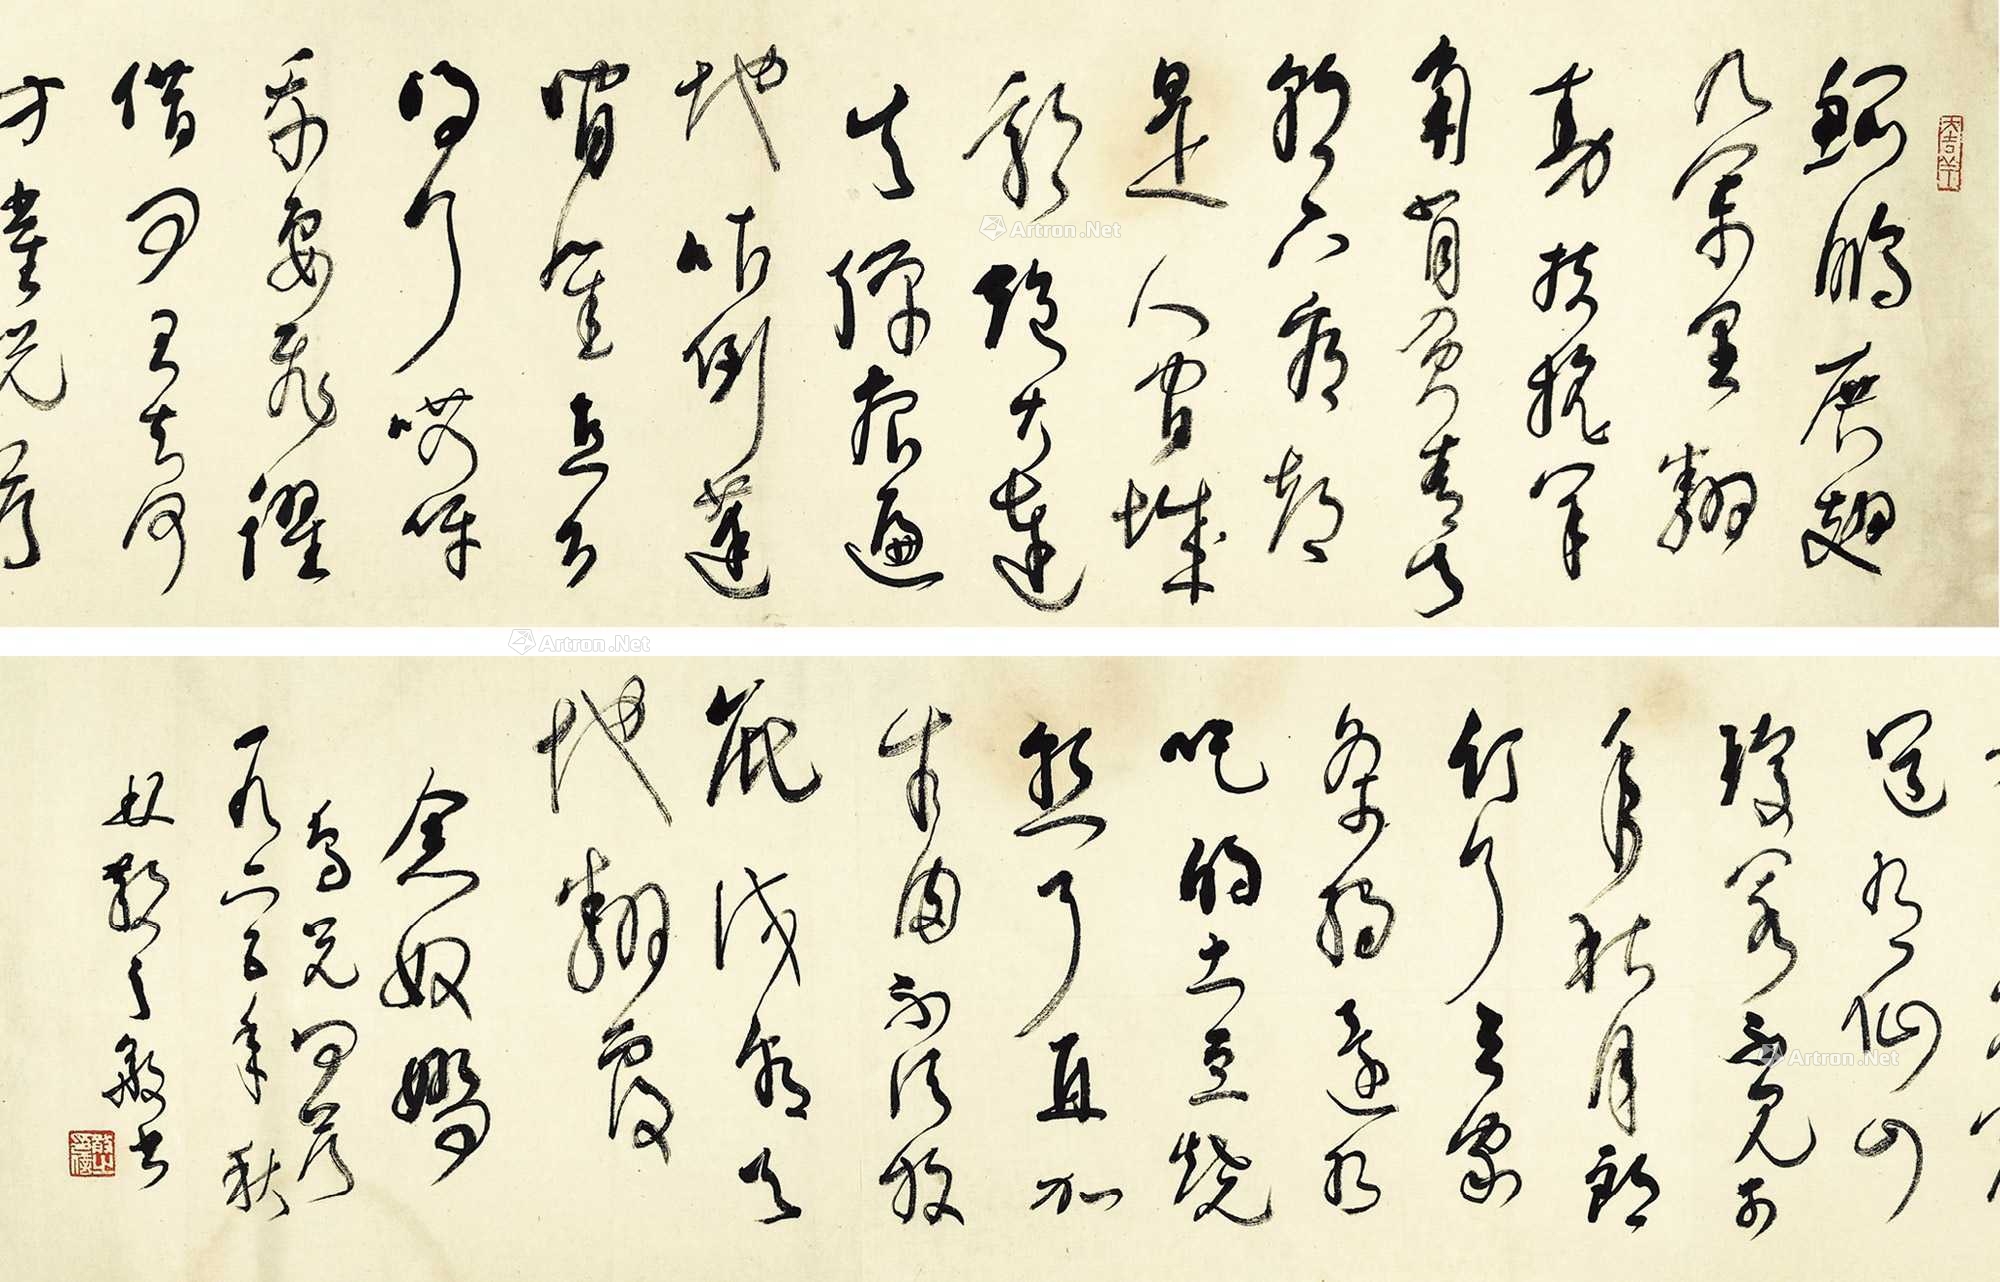 鯤鵬展翅
九万里翻
動扶摇羊
角背負青天
朝下看都
是人间城
郭炮火连
天彈痕遍
地吓倒蓬
間雀怎么
得了哎呀
我要飞躍
借问君去何
方雀兒答
道有仙山
瓊閣不見前
年秋月朗
订了三家
条約还有
吃的土豆燒
熟了再加
牛肉不須放
屁试看天
地翻覆
念奴嬌
鸟兒问答
一九六五年秋
大吉羊
Artron.Net
Artron.Net
Artron.Net